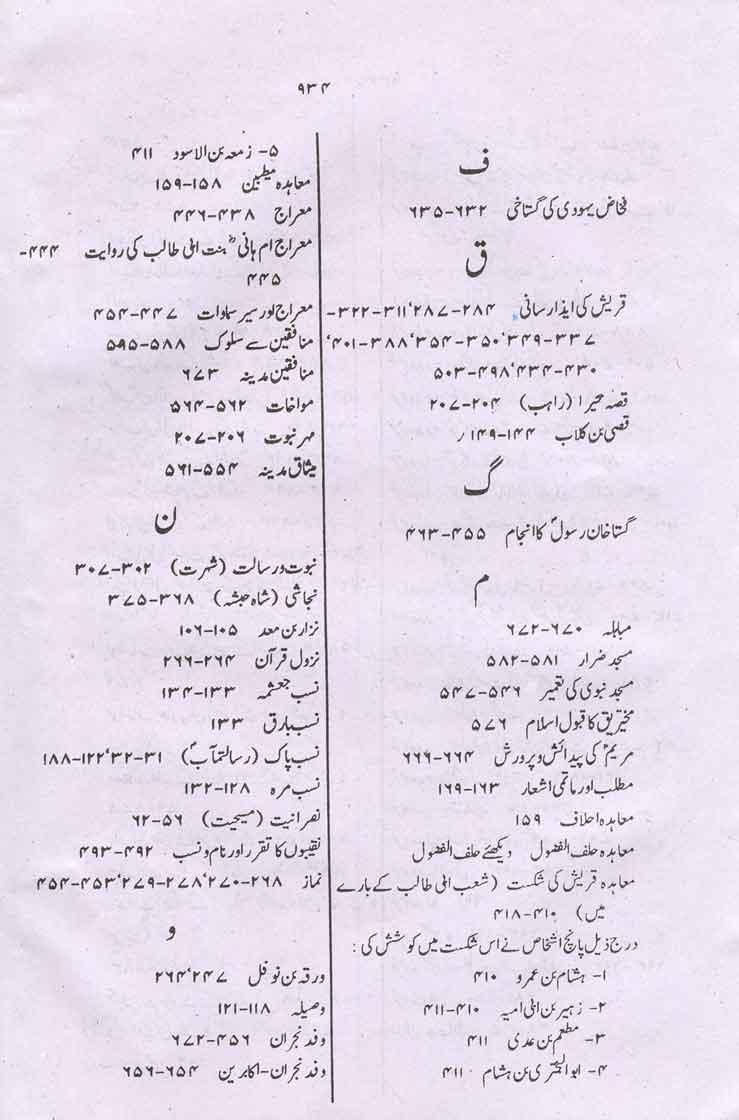 ۹۳۴
ف
فحاض یہودی کی گستاخی ۶۳۲-۶۳۵
ق
قریش کی ایذا رسانی ۲۸۴-۲۸۷‘۳۱۱-۳۲۲-
۳۳۷-۳۴۹‘۳۵۰-۳۵۴‘۳۸۸-۴۰۱‘
۴۳۰-۴۳۴‘۴۹۸-۵۰۳
قصہ بحیرا (راہب) ۲۰۴-۲۰۷
قصی بن کلاب ۱۴۴-۱۴۹
گ
گستاخان رسولؐ کا انجام ۴۵۵-۴۶۳
م
مباہلہ ۶۷۰-۶۷۲
مسجد ضرار ۵۸۱-۵۸۲
مسجد نبوی کی تعمیر ۵۴۶-۵۴۷
مخیریق کا قبول اسلام ۵۷۶
مریمؑ کی پیدائش و پرورش ۶۶۴-۶۶۶
مطلب اور ماتمی اشعار ۱۶۳-۱۶۹
معاہدہ احلاف ۱۵۹
معاہدہ حلف الفضول دیکھئے حلف الفضول
معاہدہ قریش کی شکست (شعب ابی طالب کے بارے
میں) ۴۱۰-۴۱۸
درج ذیل پانچ اشخاص نے اس شکست میں کوشش کی:
۱- ہشام بن عمرو ۴۱۰
۲- زہیر بن ابی امیہ ۴۱۰-۴۱۱
۳- مطعم بن عدی ۴۱۱
۴- ابوالبختری بن ہشام ۴۱۱
۵- زمعہ بن الاسود ۴۱۱
معاہدہ مطیبین ۱۵۸-۱۵۹
معراج ۴۳۸-۴۴۶
معراج ام ہانیؓ بنت ابی طالب کی روایت ۴۴۴-
۴۴۵
معراج اور سیر سماوات ۴۴۷-۴۵۴
منافقین سے سلوک ۵۸۸-۵۹۵
منافقین مدینہ ۶۷۳
مواخات ۵۶۲-۵۶۴
مہر نبوت ۲۰۶-۲۰۷
میثاق مدینہ ۵۵۴-۵۶۱
ن
نبوت و رسالت (شہرت) ۳۰۲-۳۰۷
نجاشی (شاہ حبشہ) ۳۶۸-۳۷۵
نزار بن معد ۱۰۵-۱۰۶
نزول قرآن ۲۶۴-۲۶۶
نسب جعثمہ ۱۳۳-۱۳۴
نسب بارق ۱۳۳
نسب پاک (رسالتمآبؐ) ۳۱-۳۲‘۱۲۲-۱۸۸
نسب مرہ ۱۲۸-۱۳۲
نصرانیت (مسیحیت) ۵۶-۶۲
نقیبوں کا تقرر اور نام و نسب ۴۹۲-۴۹۳
نماز ۲۶۸-۲۷۰‘۲۷۸-۲۷۹‘۴۵۳-۴۵۴
و
ورقہ بن نوفل ۲۴۷‘۲۶۴
وصیلہ ۱۱۸-۱۲۱
وفد نجران ۴۵۶-۶۷۲
وفد نجران- اکابرین ۶۵۴-۶۵۶